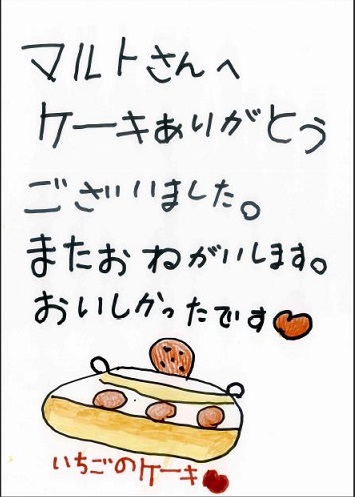 マルトさんへ
ケーキありがとう
ございました。
またおねがいします。
おいしかったです
いちごのケーキ